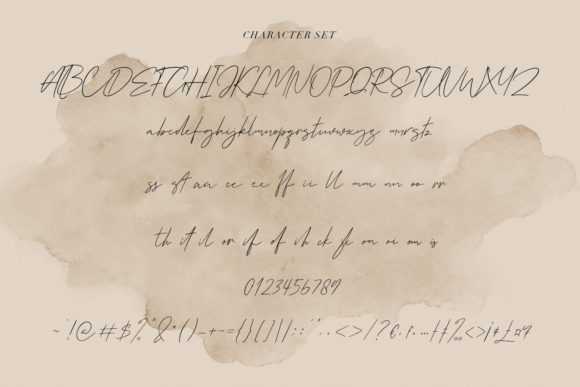 CHARACTER SET
ABCDEFGHIJKLMNOPQRSTUVWXYZ
abcdefghijklmnopqrstuvwxyz mrstz
ss aa cc ee ff ii ll mm nn oo rr
th it il or if of ih ck fe on oi om is
0123456789
~ ! @ # $ % & * ( ) _ + - = { } [ ] | : ; . . < > / ? € . . … ‰ < > ¡ ¢ £ ¤ ¥